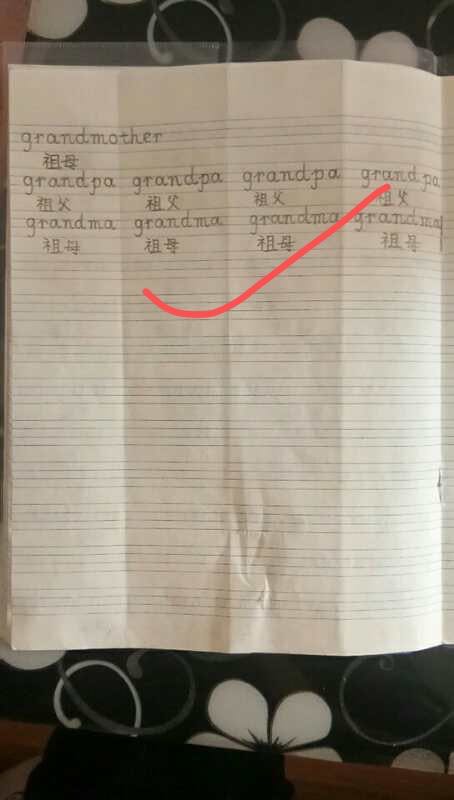 grandmother
祖母
grandpa grandpa grandpa grandpa
祖父 祖父 祖父 祖父
grandma grandma grandma grandma
祖母 祖母 祖母 祖母